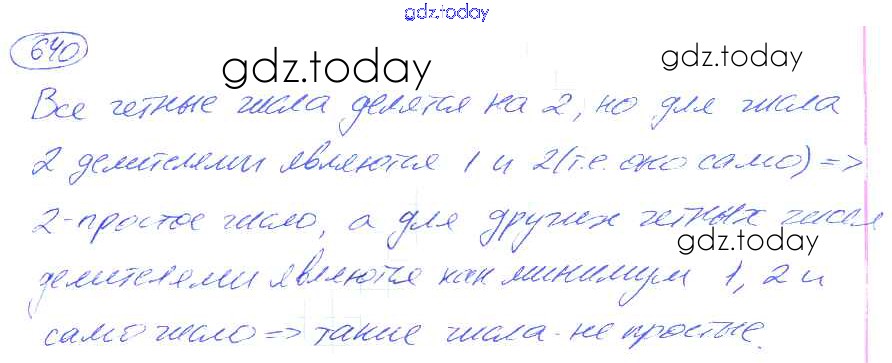 gdz.today
640
gdz.today
gdz.today
Все четные числа делятся на 2, но для числа
2 делителями являются 1 и 2 (т.е. оно само) =>
2 - простое число, а для других четных чисел
gdz.today
делителями являются как минимум 1, 2 и
само число => такие числа - не простые.